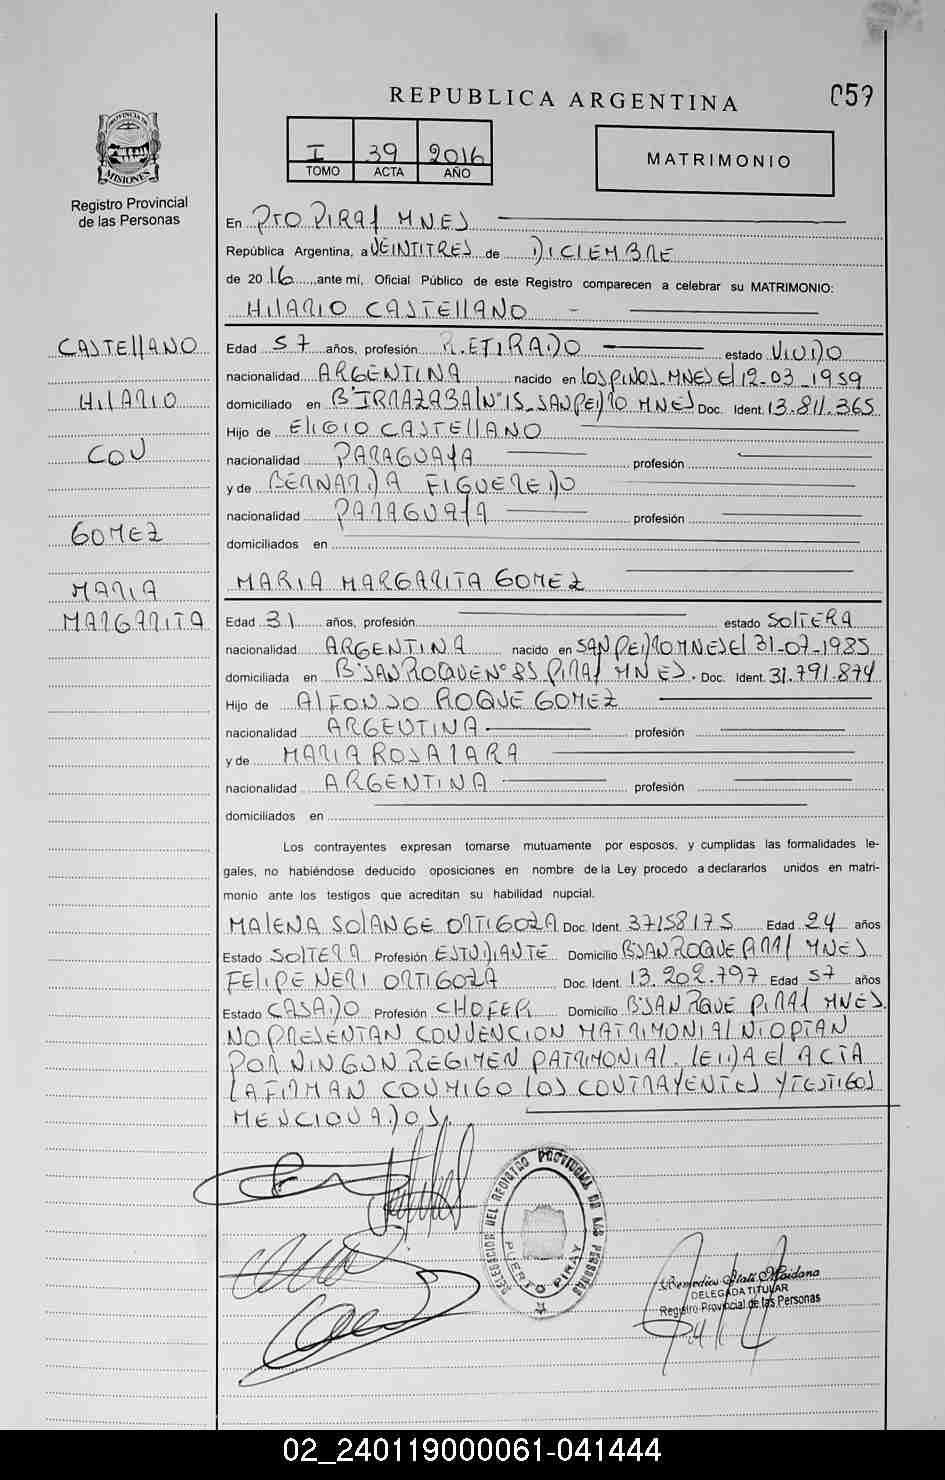 REPUBLICA ARGENTINA
059
PROVINCIA DE
MISIONES
Registro Provincial
de las Personas
I 39 2016
TOMO ACTA AÑO
MATRIMONIO
En PTO PIRAY MNES
República Argentina, a VEINTITRES de DICIEMBRE
de 2016 ante mí, Oficial Público de este Registro comparecen a celebrar su MATRIMONIO:
HILARIO CASTELLANO
CASTELLANO
HILARIO
CON
GOMEZ
MARIA
MARGARITA
Edad 57 años, profesión RETIRADO estado VIUDO
nacionalidad ARGENTINA nacido en LOS PINOS MNES el 12-03-1959
domiciliado en B° IRRAZABAL N°15 SAN PEDRO MNES Doc. Ident. 13.811.365
Hijo de ELIGIO CASTELLANO
nacionalidad PARAGUAYA profesión
y de BERNARDA FIGUEREDO
nacionalidad PARAGUAYA profesión
domiciliados en
MARIA MARGARITA GOMEZ
Edad 31 años, profesión estado SOLTERA
nacionalidad ARGENTINA nacido en SAN PEDRO MNES el 31-07-1985
domiciliada en B° SAN ROQUE N° 85 PIRAY MNES. Doc. Ident. 31.791.874
Hijo de ALFONSO ROQUE GOMEZ
nacionalidad ARGENTINA profesión
y de MARIA ROSA LARA
nacionalidad ARGENTINA profesión
domiciliados en
Los contrayentes expresan tomarse mutuamente por esposos, y cumplidas las formalidades le-
gales, no habiéndose deducido oposiciones en nombre de la Ley procedo a declararlos unidos en matri-
monio ante los testigos que acreditan su habilidad nupcial.
MALENA SOLANGE ORTIGOZA Doc. Ident. 37158175 Edad 24 años
Estado SOLTERA Profesión ESTUDIANTE Domicilio B° SAN ROQUE PIRAY MNES
FELIPE NERI ORTIGOZA Doc. Ident. 13.202.797 Edad 57 años
Estado CASADO Profesión CHOFER Domicilio B° SAN RQUE PIRAY MNES.
NO PRESENTAN CONVENCION MATRIMONIAL NI OPTAN
POR NINGUN REGIMEN PATRIMONIAL. LEIDA EL ACTA
LA FIRMAN CONMIGO LOS CONTRAYENTES Y TESTIGOS
MENCIONADOS.
DELEGACION DEL REGISTRO PROVINCIAL DE LAS PERSONAS
PUERTO PIRAY
Remedios Maidana
DELEGADA TITULAR
Registro Provincial de las Personas
02_240119000061-041444